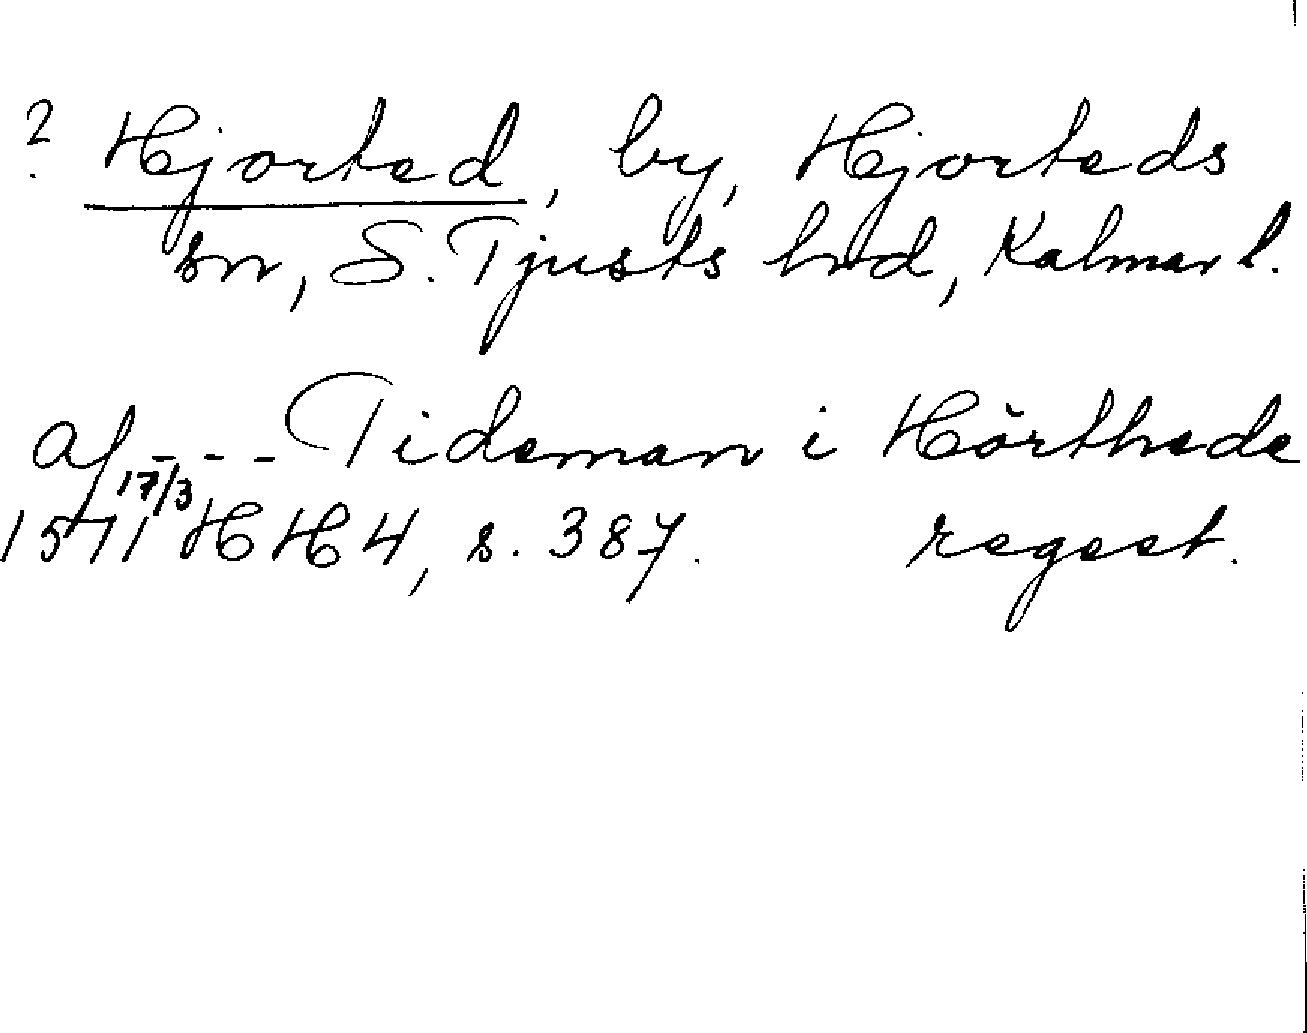 ? Hjorted, by, Hjorteds
sn, S. Tjusts hrd, Kalmar l.
af - - - Tideman i Hörthede
17/3
1571 HH 4, s. 387. regest.